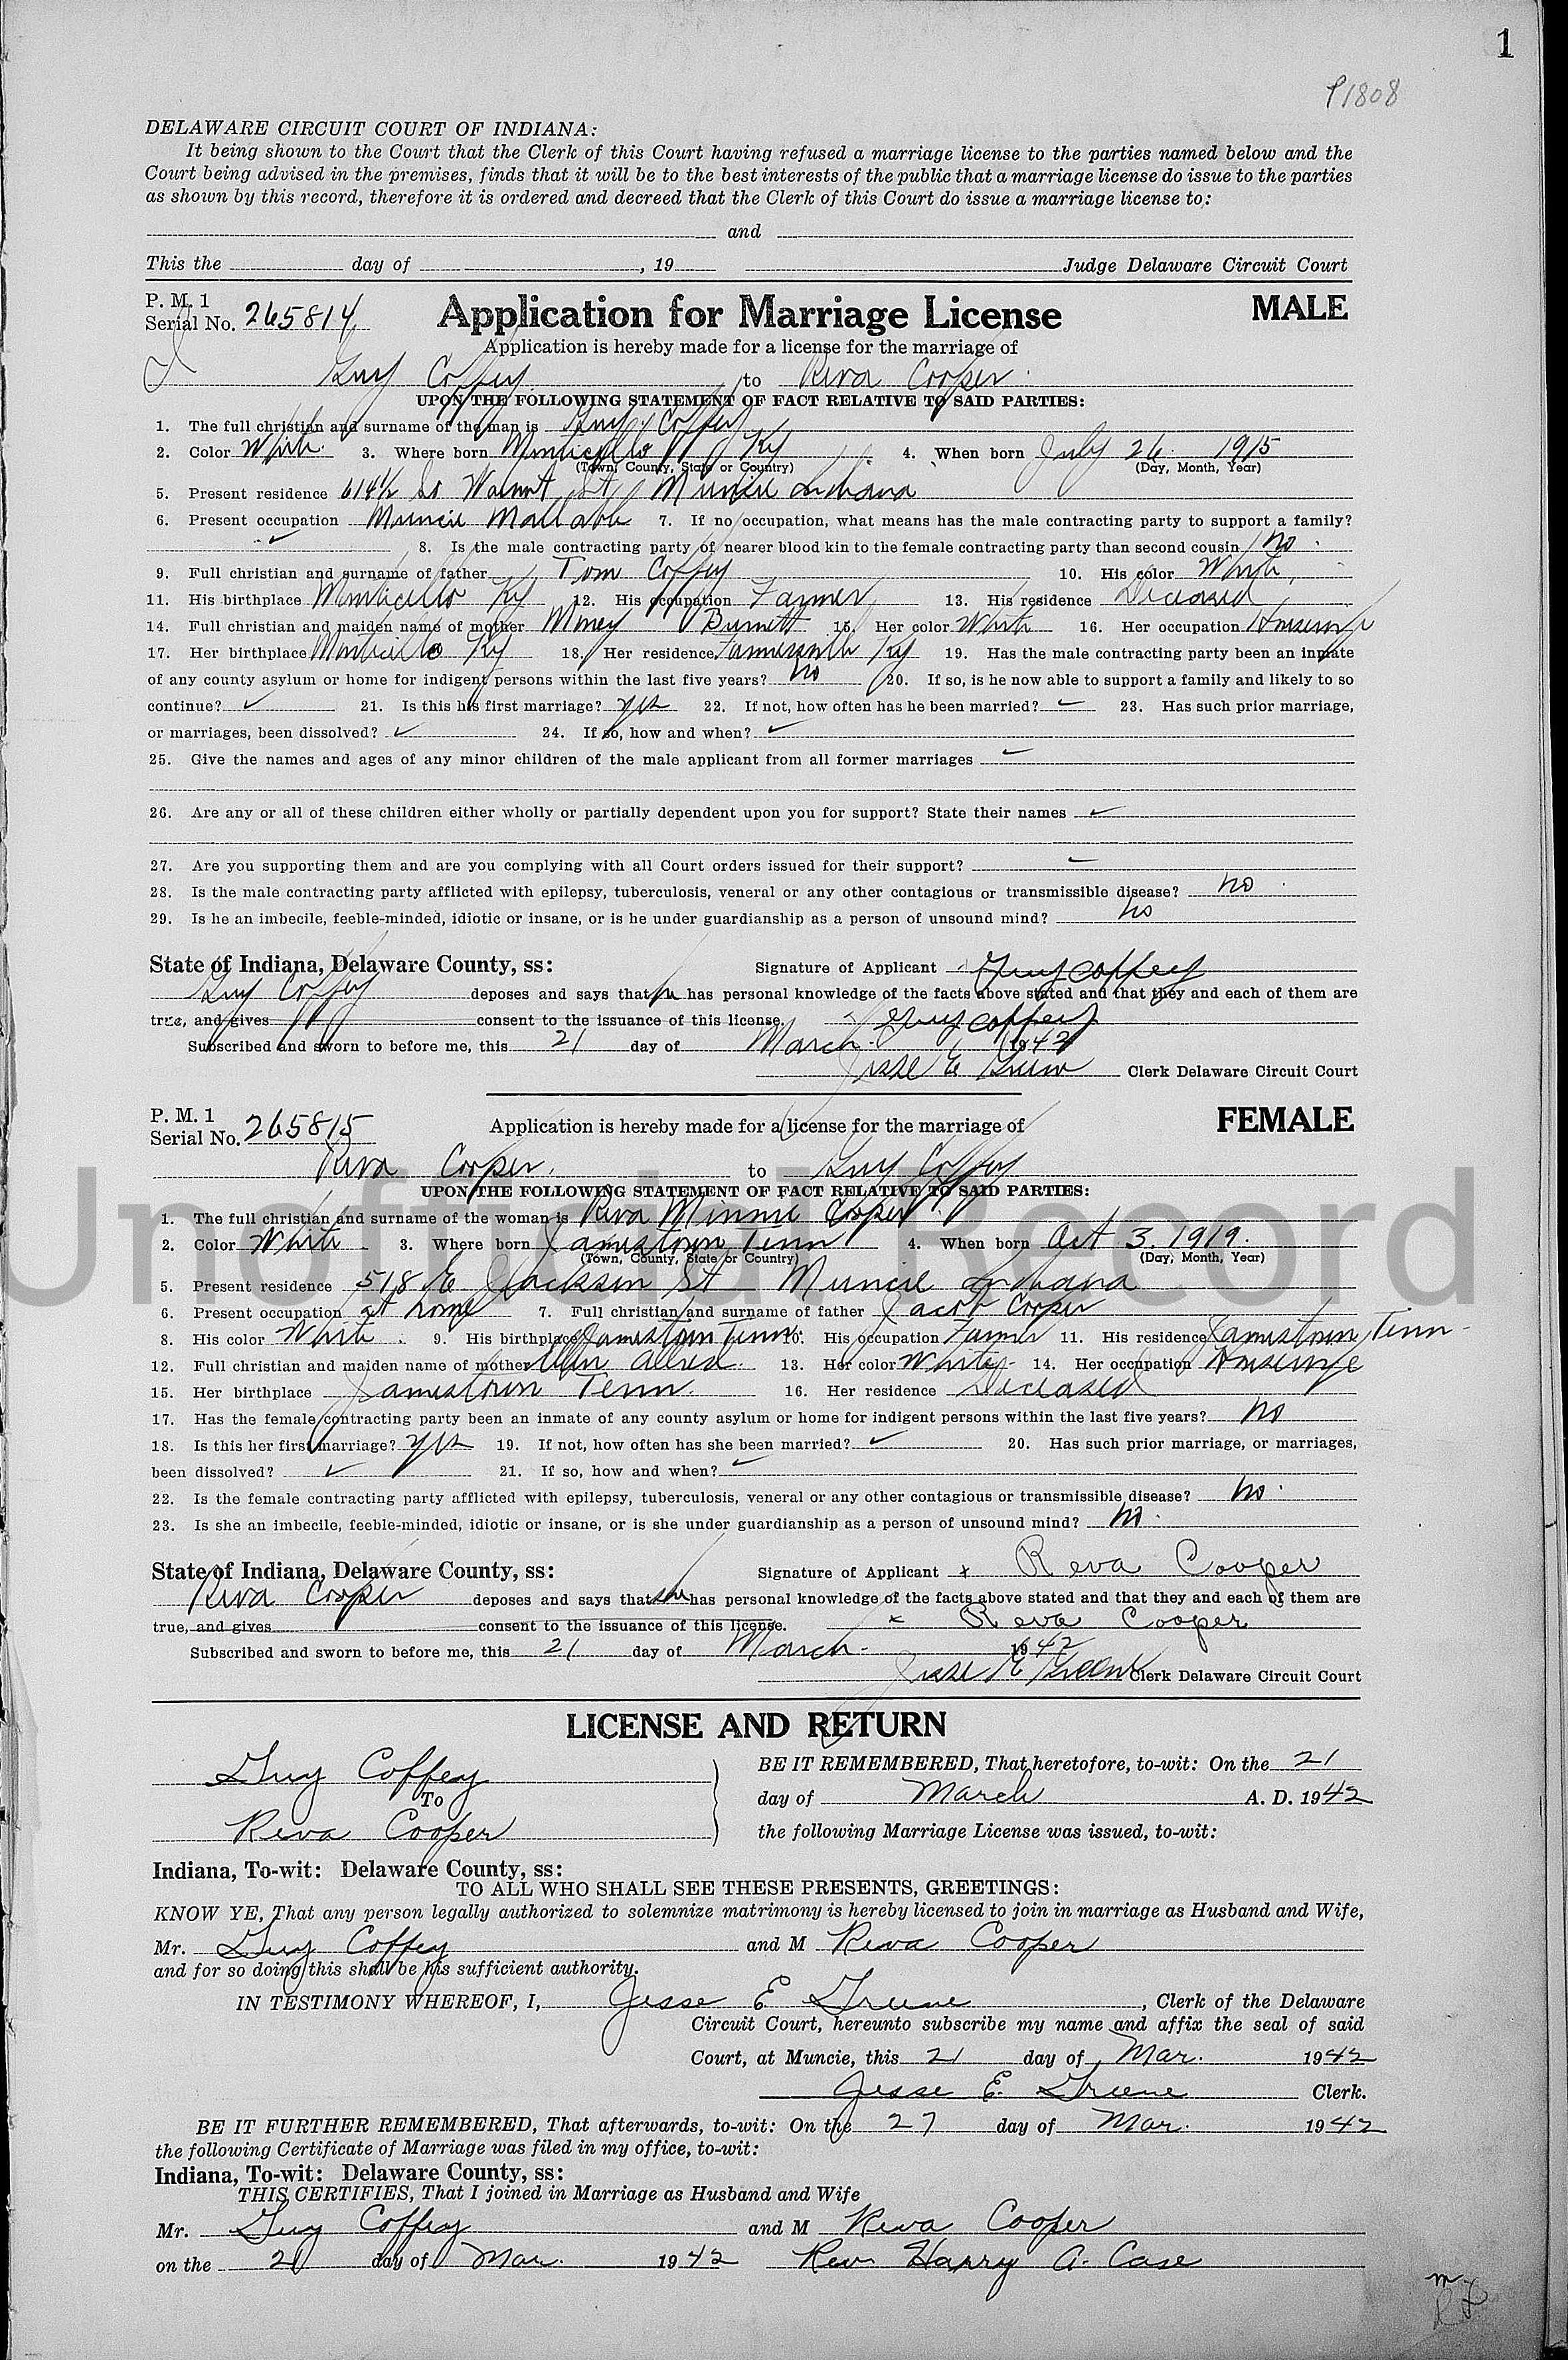 1
P1808
DELAWARE CIRCUIT COURT OF INDIANA:
It being shown to the Court that the Clerk of this Court having refused a marriage license to the parties named below and the
Court being advised in the premises, finds that it will be to the best interests of the public that a marriage license do issue to the parties
as shown by this record, therefore it is ordered and decreed that the Clerk of this Court do issue a marriage license to:
and
This the day of , 19 Judge Delaware Circuit Court
P. M. 1
Serial No. 265814 Application for Marriage License MALE
Application is hereby made for a license for the marriage of
Guy Coffey to Reva Cooper
UPON THE FOLLOWING STATEMENT OF FACT RELATIVE TO SAID PARTIES:
1. The full christian and surname of the man is Guy Coffey
2. Color White 3. Where born Monticello Ky 4. When born July 26 1915
(Town, County, State or Country) (Day, Month, Year)
5. Present residence 614½ So Walnut St Muncie Indiana
6. Present occupation Muncie Malleable 7. If no occupation, what means has the male contracting party to support a family?
8. Is the male contracting party of nearer blood kin to the female contracting party than second cousin no
9. Full christian and surname of father Tom Coffey 10. His color White
11. His birthplace Monticello Ky 12. His occupation Farmer 13. His residence Deceased
14. Full christian and maiden name of mother Burnett 15. Her color White 16. Her occupation Housewife
17. Her birthplace Monticello Ky 18. Her residence Ky 19. Has the male contracting party been an inmate
of any county asylum or home for indigent persons within the last five years? no 20. If so, is he now able to support a family and likely to so
continue? ✓ 21. Is this his first marriage? yes 22. If not, how often has he been married? ✓ 23. Has such prior marriage,
or marriages, been dissolved? ✓ 24. If so, how and when? ✓
25. Give the names and ages of any minor children of the male applicant from all former marriages ✓
26. Are any or all of these children either wholly or partially dependent upon you for support? State their names ✓
27. Are you supporting them and are you complying with all Court orders issued for their support? ✓
28. Is the male contracting party afflicted with epilepsy, tuberculosis, veneral or any other contagious or transmissible disease? no
29. Is he an imbecile, feeble-minded, idiotic or insane, or is he under guardianship as a person of unsound mind? no
State of Indiana, Delaware County, ss: Signature of Applicant Guy Coffey
Guy Coffey deposes and says that he has personal knowledge of the facts above stated and that they and each of them are
true, and gives consent to the issuance of this license. Guy Coffey
Subscribed and sworn to before me, this 21 day of March 1942
Jesse E Greene Clerk Delaware Circuit Court
P. M. 1
Serial No. 265815 Application is hereby made for a license for the marriage of FEMALE
Reva Cooper to Guy Coffey
UPON THE FOLLOWING STATEMENT OF FACT RELATIVE TO SAID PARTIES:
1. The full christian and surname of the woman is Reva Minnie Cooper
2. Color White 3. Where born Jamestown Tenn 4. When born Oct 3. 1919.
(Town, County, State or Country) (Day, Month, Year)
Unofficial Record
5. Present residence 518 E Jackson St Muncie Indiana
6. Present occupation at home 7. Full christian and surname of father Jacob Cooper
8. His color White 9. His birthplace Jamestown Tenn. 10. His occupation Farmer 11. His residence Jamestown Tenn
12. Full christian and maiden name of mother Allred 13. Her color White 14. Her occupation Housewife
15. Her birthplace Jamestown Tenn. 16. Her residence Deceased
17. Has the female contracting party been an inmate of any county asylum or home for indigent persons within the last five years? no
18. Is this her first marriage? yes 19. If not, how often has she been married? ✓ 20. Has such prior marriage, or marriages,
been dissolved? ✓ 21. If so, how and when? ✓
22. Is the female contracting party afflicted with epilepsy, tuberculosis, veneral or any other contagious or transmissible disease? no
23. Is she an imbecile, feeble-minded, idiotic or insane, or is she under guardianship as a person of unsound mind? no
State of Indiana, Delaware County, ss: Signature of Applicant x Reva Cooper
Reva Cooper deposes and says that she has personal knowledge of the facts above stated and that they and each of them are
true, and gives consent to the issuance of this license. x Reva Cooper
Subscribed and sworn to before me, this 21 day of March 1942
Jesse E Greene Clerk Delaware Circuit Court
LICENSE AND RETURN
Guy Coffey BE IT REMEMBERED, That heretofore, to-wit: On the 21
To day of March A. D. 1942
Reva Cooper the following Marriage License was issued, to-wit:
Indiana, To-wit: Delaware County, ss:
TO ALL WHO SHALL SEE THESE PRESENTS, GREETINGS:
KNOW YE, That any person legally authorized to solemnize matrimony is hereby licensed to join in marriage as Husband and Wife,
Mr. Guy Coffey and M Reva Cooper
and for so doing this shall be his sufficient authority.
IN TESTIMONY WHEREOF, I, Jesse E Greene , Clerk of the Delaware
Circuit Court, hereunto subscribe my name and affix the seal of said
Court, at Muncie, this 21 day of Mar. 1942
Jesse E. Greene Clerk.
BE IT FURTHER REMEMBERED, That afterwards, to-wit: On the 27 day of Mar. 1942
the following Certificate of Marriage was filed in my office, to-wit:
Indiana, To-wit: Delaware County, ss:
THIS CERTIFIES, That I joined in Marriage as Husband and Wife
Mr. Guy Coffey and M Reva Cooper
on the 21 day of Mar. 1942 Rev. Harry A. Case